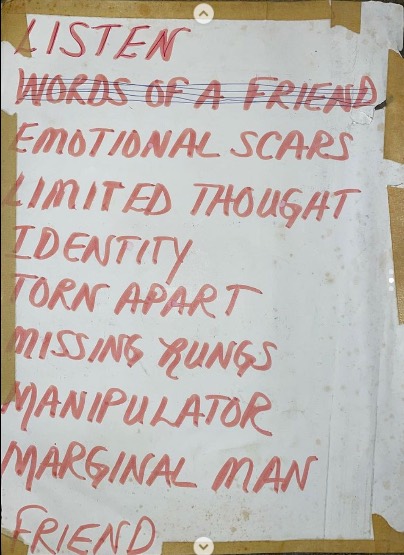 LISTEN
WORDS OF A FRIEND
EMOTIONAL SCARS
LIMITED THOUGHT
IDENTITY
TORN APART
MISSING RUNGS
MANIPULATOR
MARGINAL MAN
FRIEND